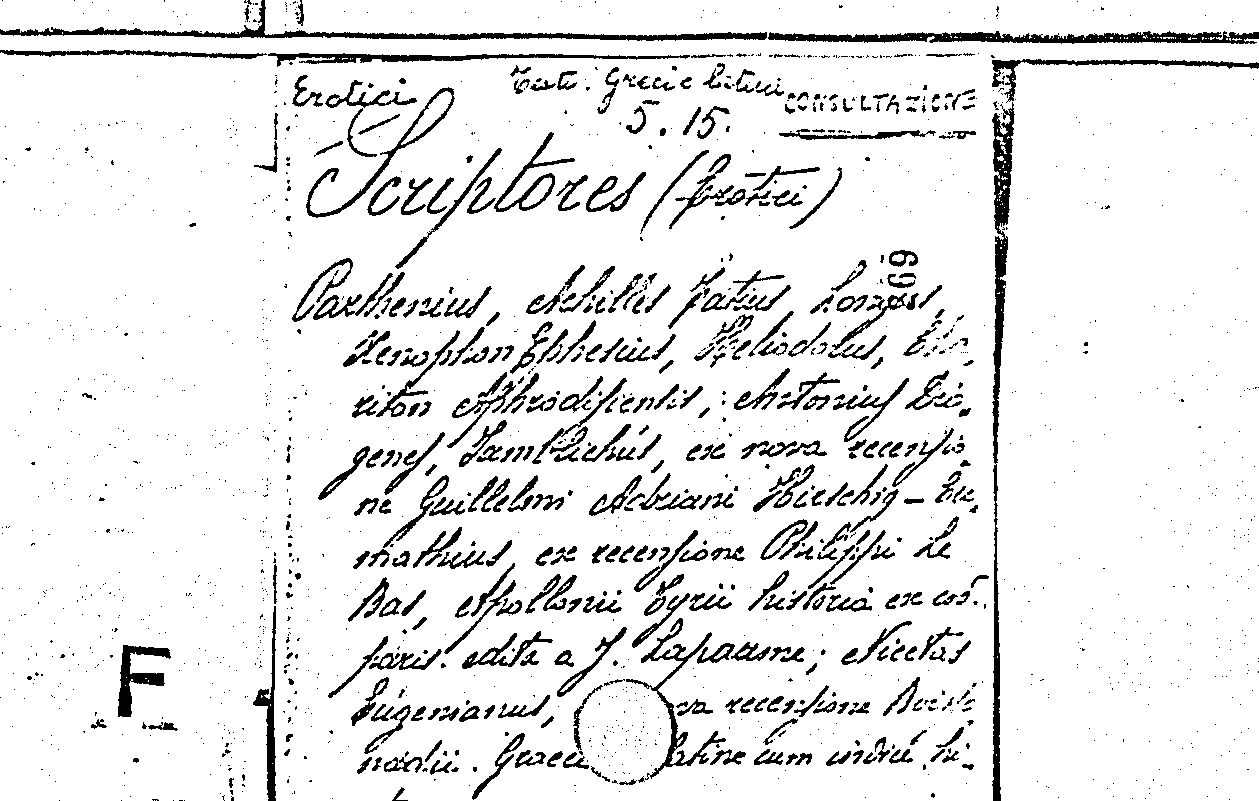 Erotici Testi. Greci e latini CONSULTAZIONE
5.15.
Scriptores (Erotici)
69
Parthenius, Achilles Tatius, Longus,
Xenophon Ephesius, Heliodorus, Cha-
riton Aphrodisiensis, Antonius Dio-
genes, Iamblichus, ex nova recensio-
ne Guillelmi Adriani Hirschig - Eu-
mathius, ex recensione Philippi Le
Bas, Apollonii Tyrii historia ex cod.
paris. edita a J. Lapaume; Nicetas
Eugenianus, va recensione Boisso-
nadii. Graece latine cum indice hi-
F